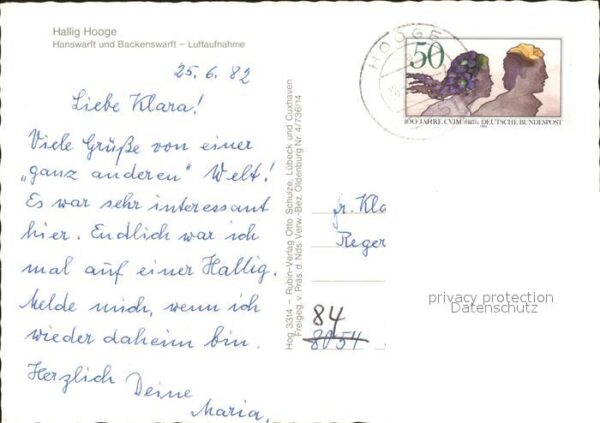 Hallig Hooge
Hanswarft und Backenswarft – Luftaufnahme
25.6.82
Liebe Klara!
Viele Grüße von einer
„ganz anderen" Welt!
Es war sehr interessant
hier. Endlich war ich
mal auf einer Hallig.
Melde mich, wenn ich
wieder daheim bin.
Herzlich Deine
Maria.
Hog 3314 – Rubin-Verlag Otto Schulze, Lübeck und Cuxhaven
Freigeg. v. Präs. d. Nds. Verw.-Bez. Oldenburg Nr. 4/736/14
HOOGE
50
100 JAHRE CVJM DEUTSCHE BUNDESPOST
Fr. Kla
Reger
84
8054
privacy protection
Datenschutz